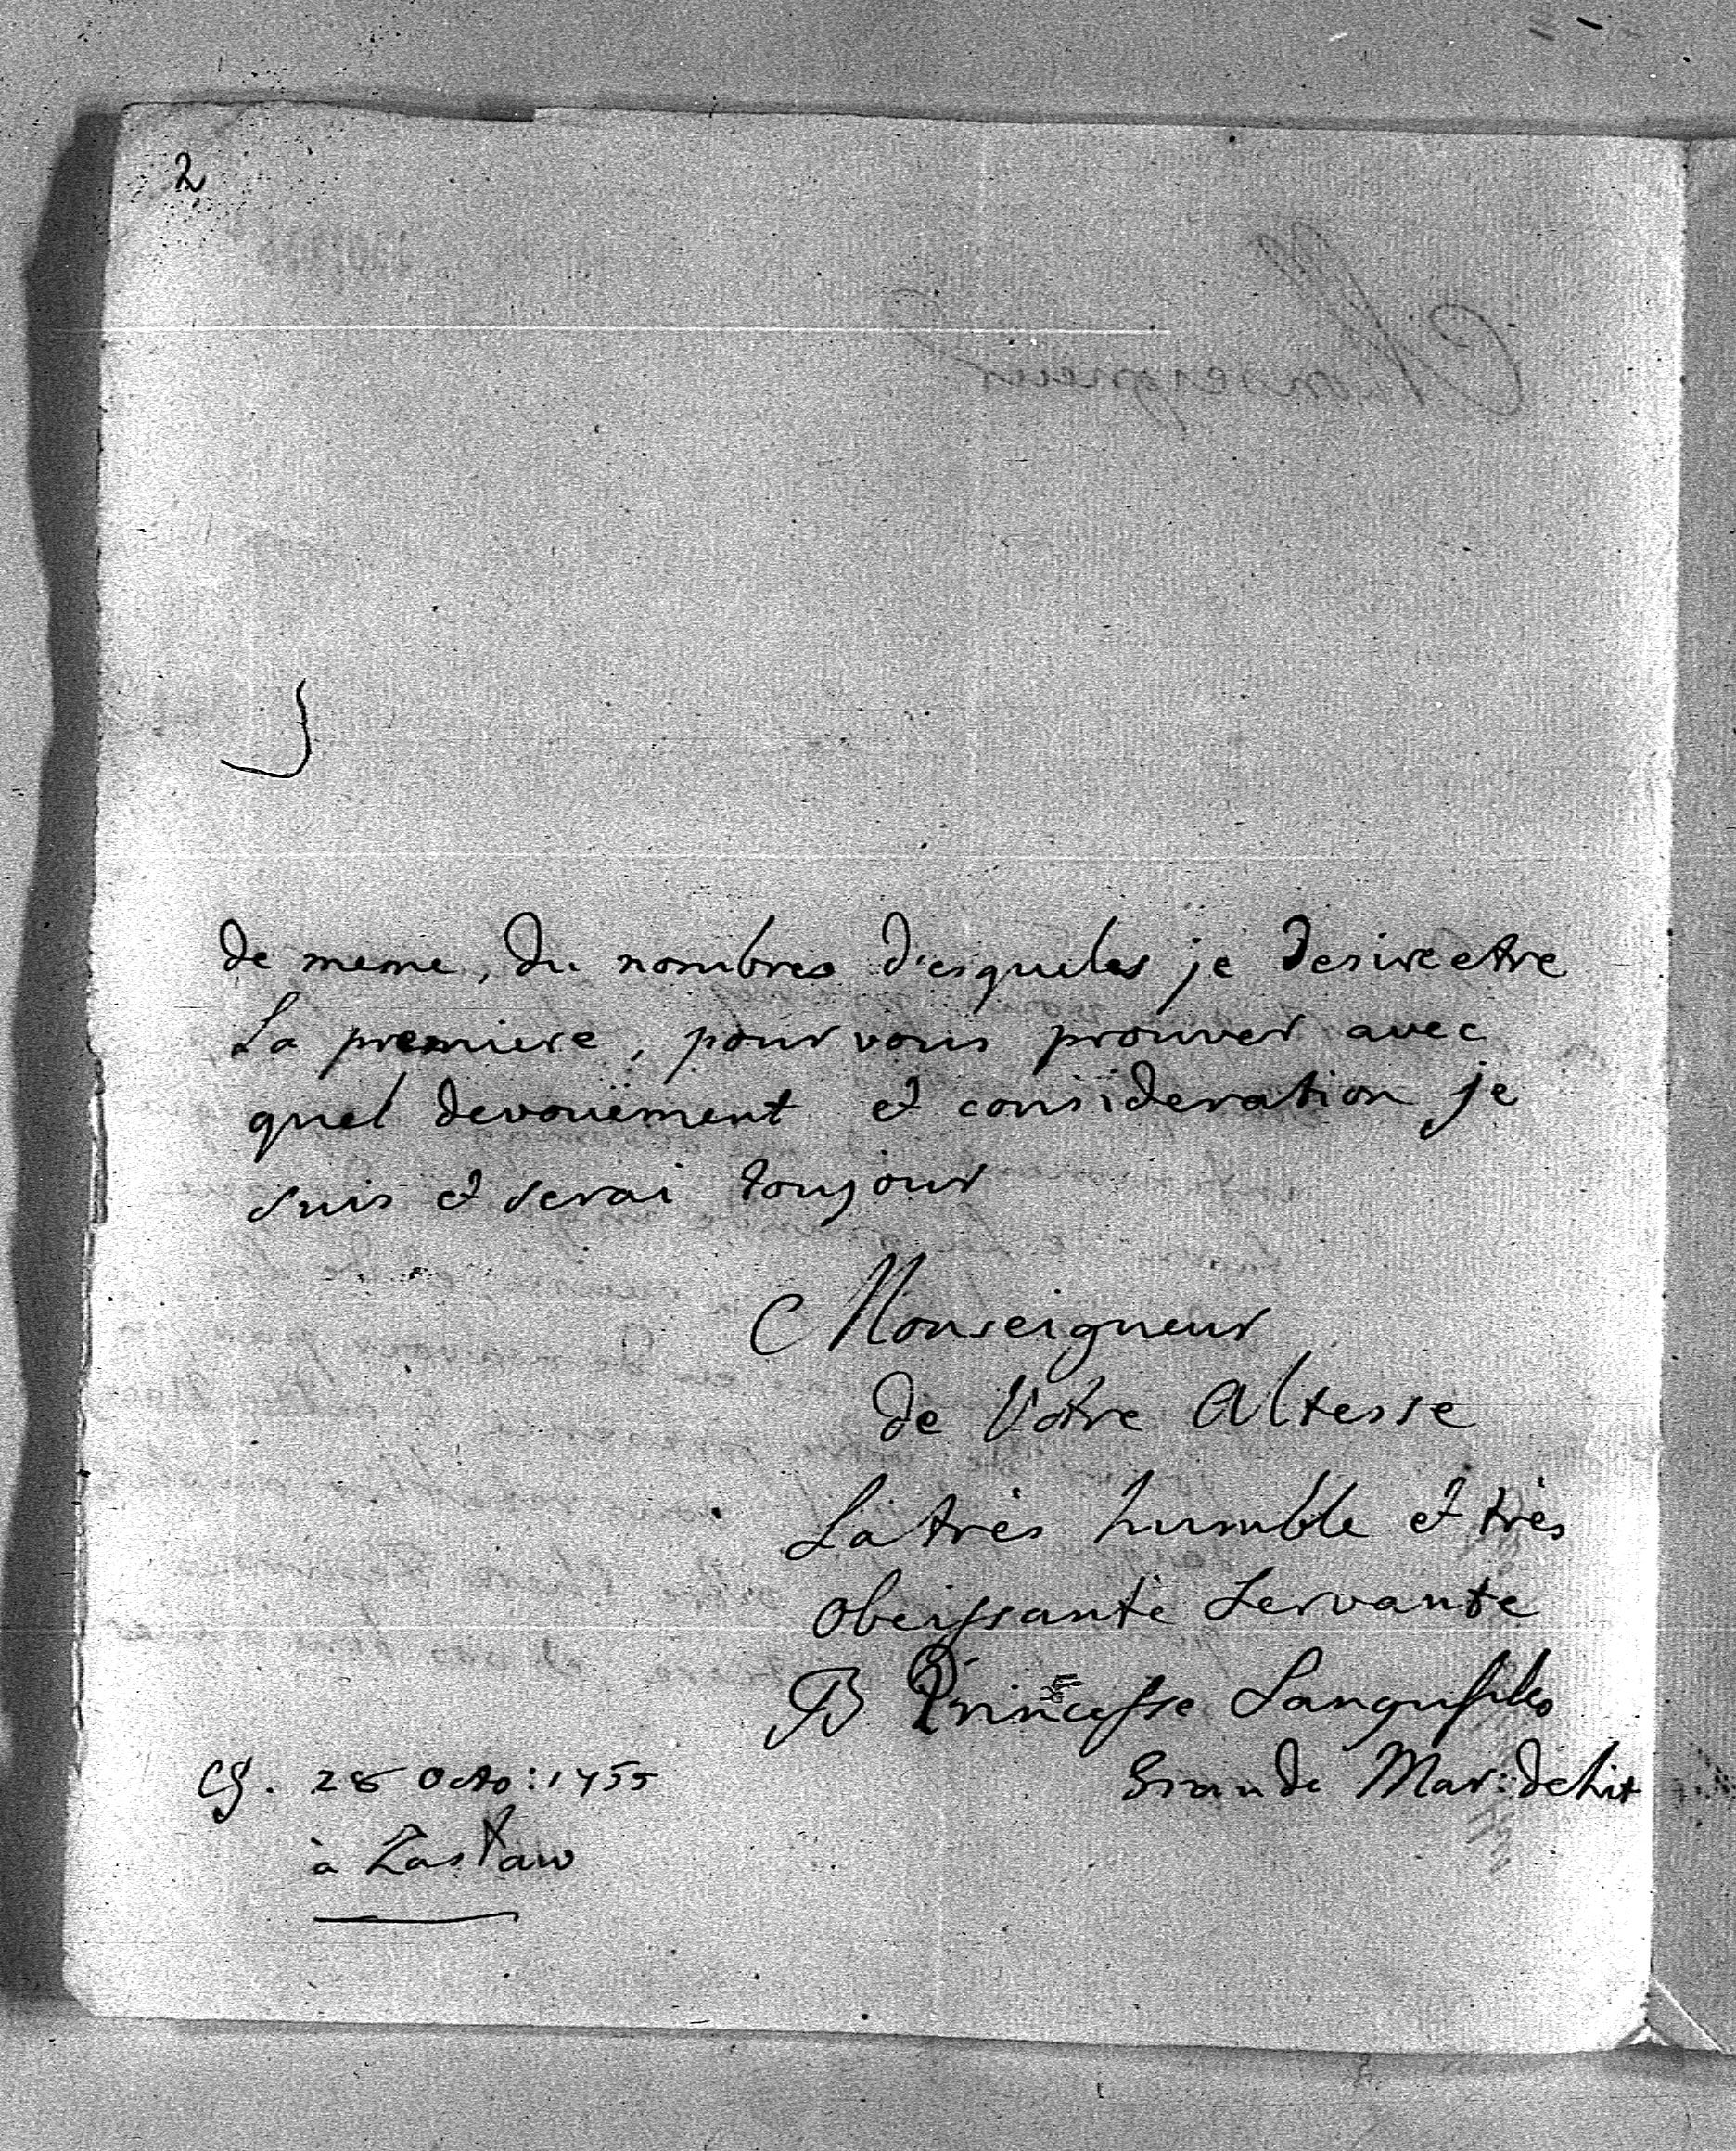 2
de meme, du nombres d'esqueles je desire etre
La premiere, pour vous prouver avec
quel devouëment et consideration je
suis et serai toujour
Monseigneur
de Votre Altesse
La très humble et très
obeissante Servante
B Princesse Sangusko
Grande Mar: de Lit
28 Octo: 1755
à Zaslaw